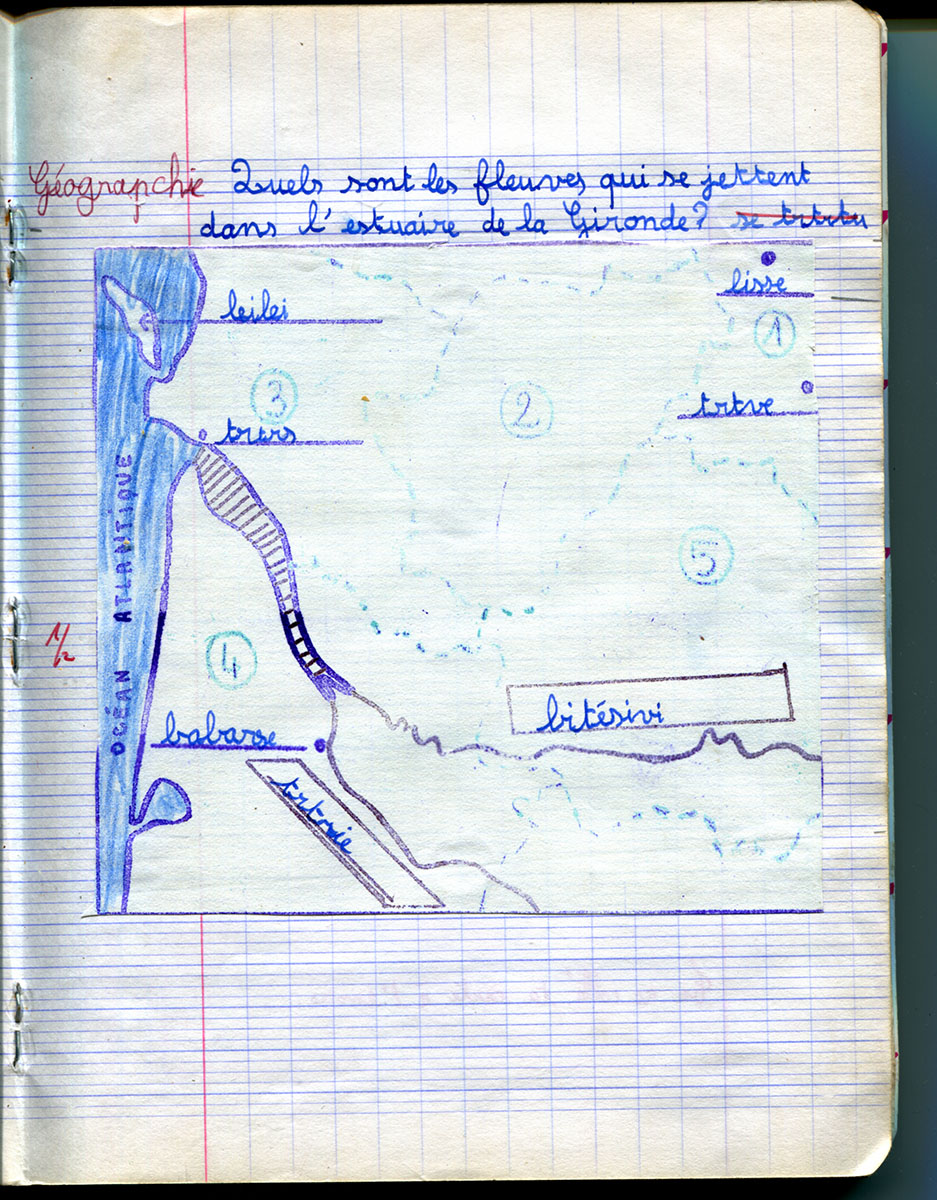 Géograpchie Quels sont les fleuves qui se jettent
dans l'estuaire de la Gironde?
lisse
1
leilei
3
2
trtve
trurs
OCÉAN ATLANTIQUE
5
1/2
4
bitésivi
babarse